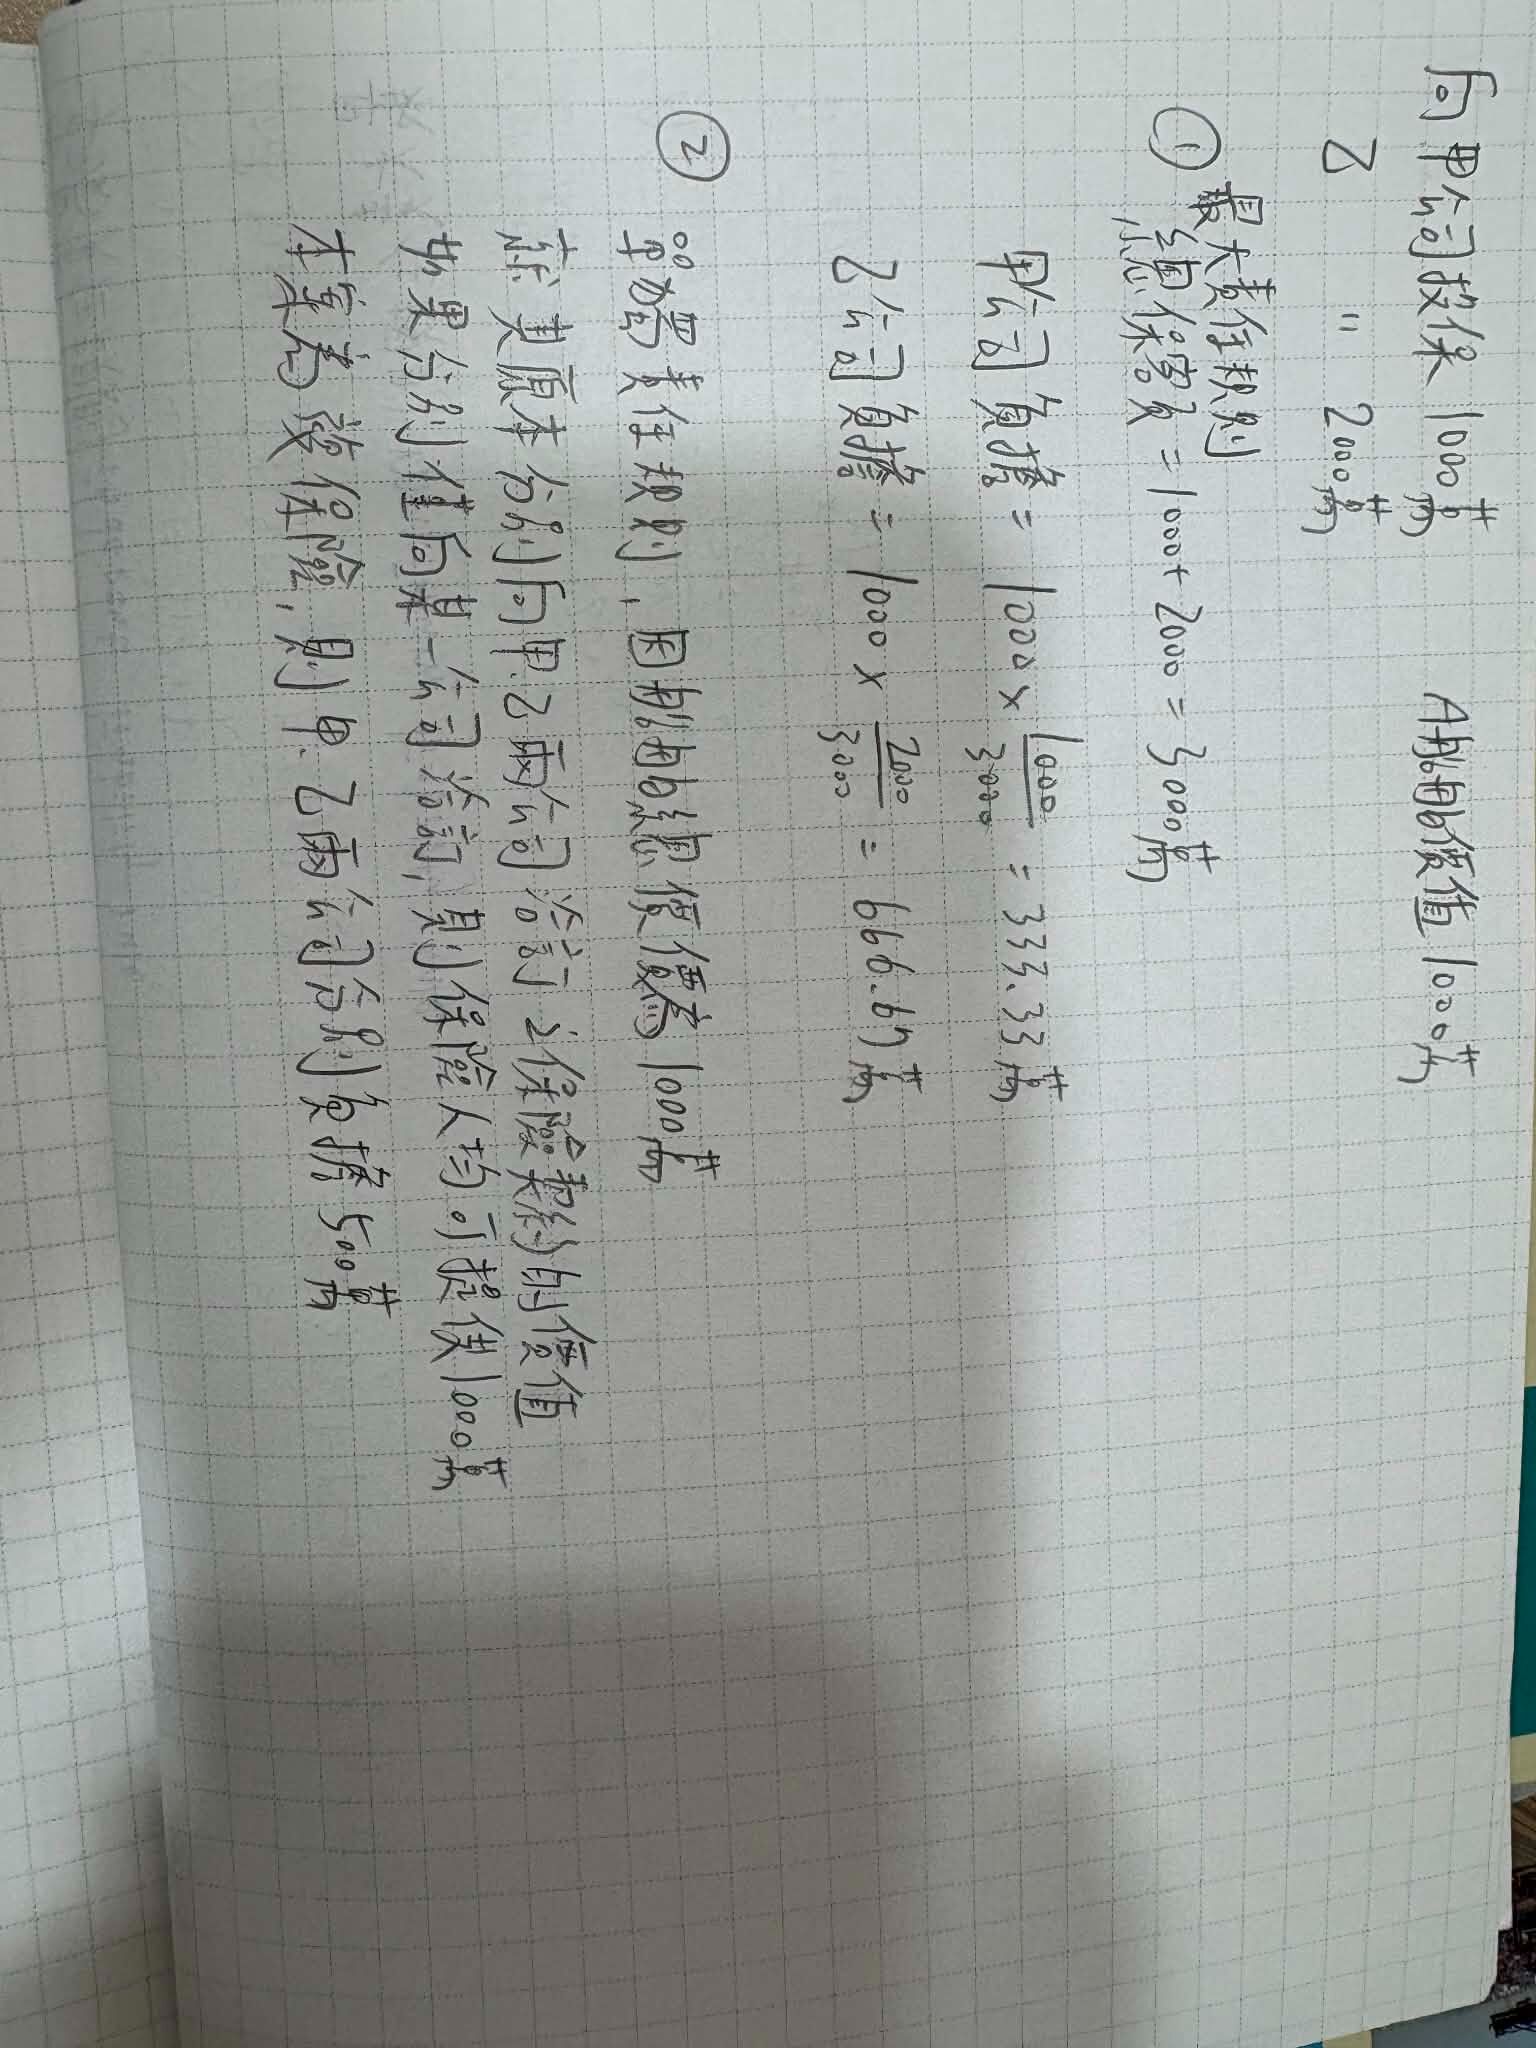 向甲公司投保 1000萬 A船舶價值1000萬
乙 " 2000萬
① 最大責任規則
總保額 = 1000 + 2000 = 3000萬
甲公司負擔 = 1000 × 1000/3000 = 333.33萬
乙公司負擔 = 1000 × 2000/3000 = 666.67萬
②
單獨責任規則,因船舶總價值為1000萬
故其原本分別向甲.乙兩公司洽訂之保險契約的價值
如果分別僅向某一公司洽訂,則保險人均可提供1000萬
本案為複保險,則甲.乙兩公司分別負擔500萬